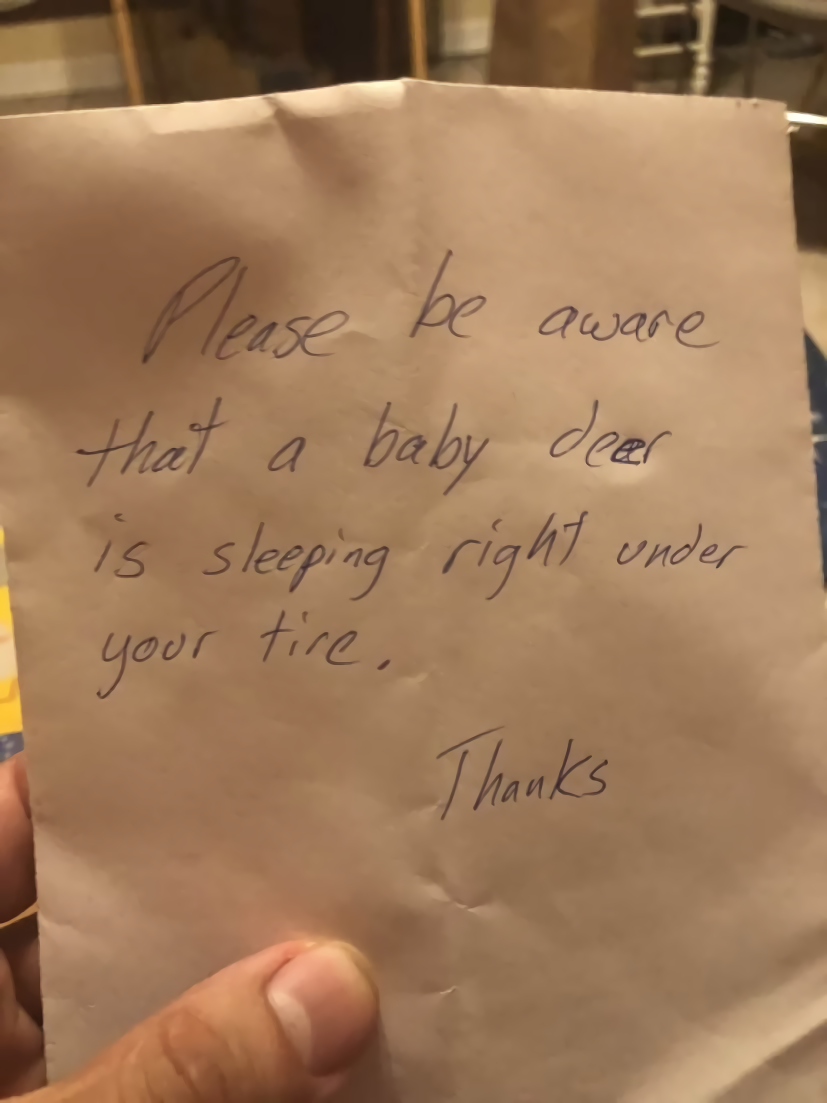 Please be aware
that a baby deer
is sleeping right under
your tire.
Thanks